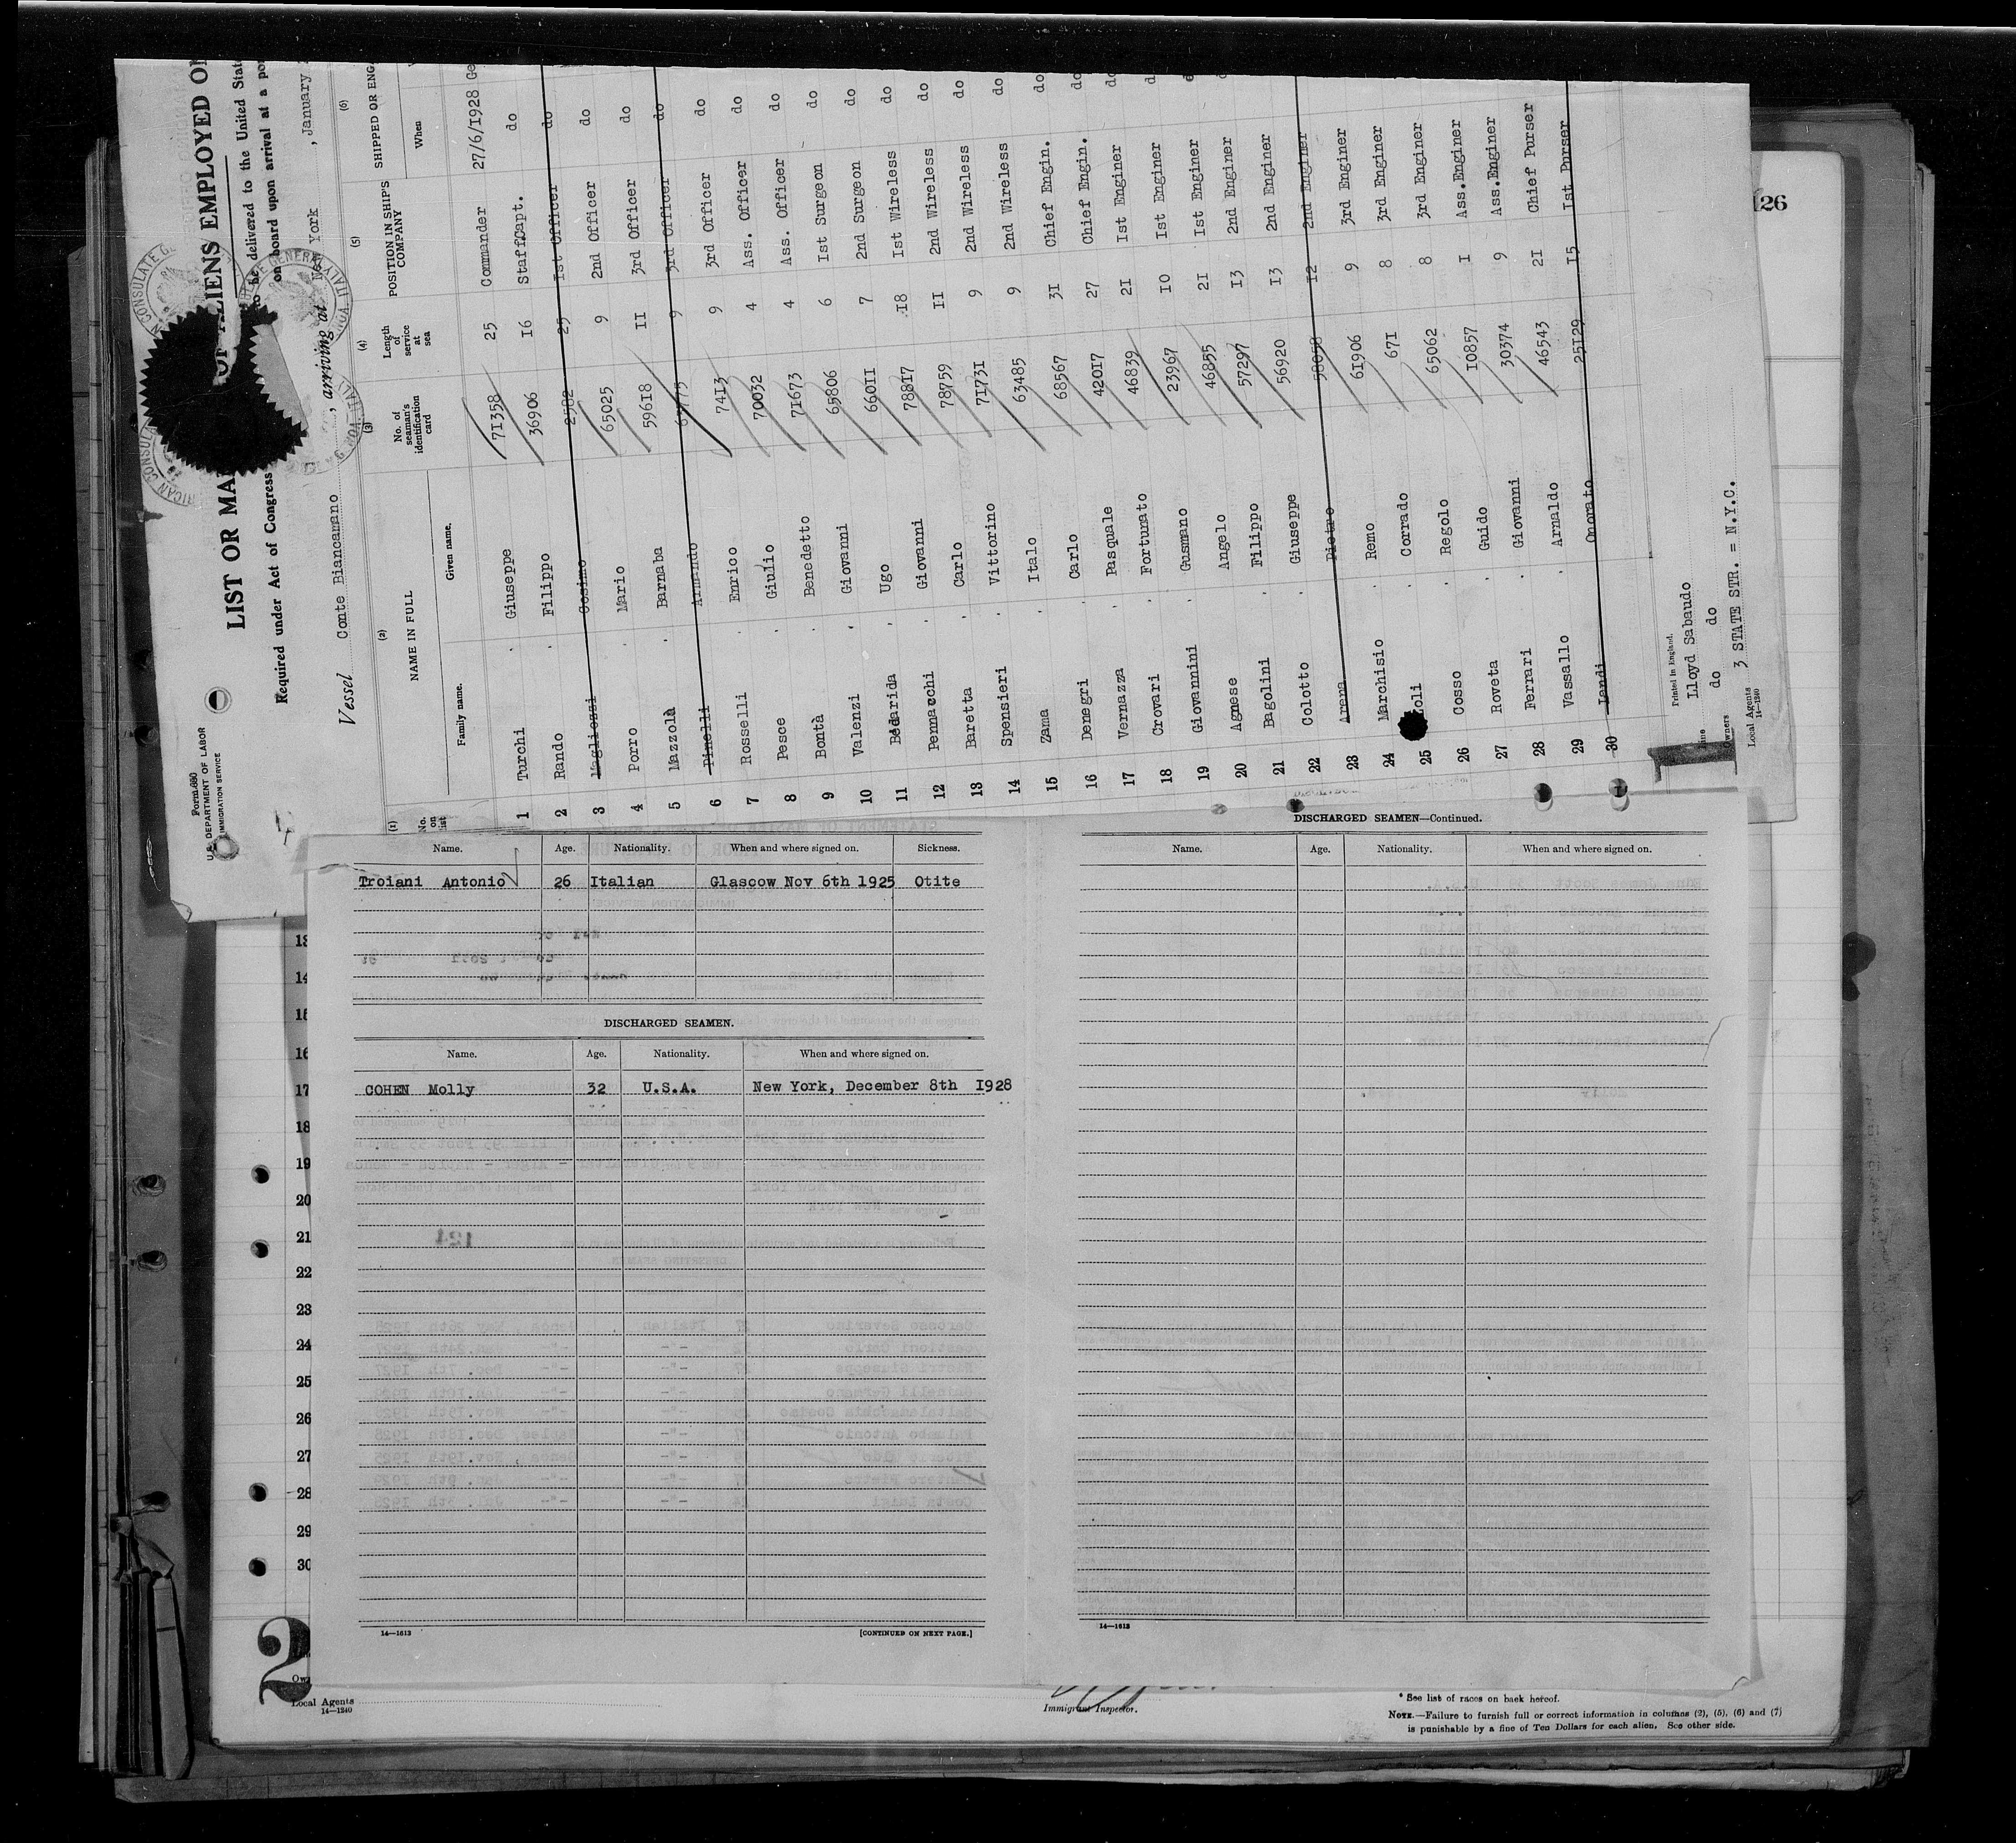 Form 680
U.S. DEPARTMENT OF LABOR
IMMIGRATION SERVICE
LIST OR MA OF ALIENS EMPLOYED O
Required under Act of Congress to be delivered to the United Stat
on board upon arrival at a po
Vessel Conte Biancamano , arriving at New York , January
(1) (2) (3) (4) (5) (6)
No. on list NAME IN FULL No. of seaman's identification card Length of service at sea POSITION IN SHIP'S COMPANY SHIPPED OR ENGA
Family name. Given name. When
1 Turchi Giuseppe 71358 25 Commander 27/6/1928 Ge
2 Rando Filippo 36906 16 Staff Capt. do
3 Magliozzi Cosimo 2582 25 1st Officer do
4 Porro Mario 65025 9 2nd Officer do
5 Mazzolà Barnaba 59618 11 3rd Officer do
6 Pinelli Armando 9 3rd Officer do
7 Rosselli Enrico 7413 9 3rd Officer do
8 Pesce Giulio 70032 4 Ass. Officer do
9 Bontà Benedetto 71673 4 Ass. Officer do
10 Valenzi Giovanni 65806 6 1st Surgeon do
11 Bedarida Ugo 66011 7 2nd Surgeon do
12 Pennacchi Giovanni 78817 18 1st Wireless do
13 Baretta Carlo 78759 11 2nd Wireless do
14 Spensieri Vittorino 71731 9 2nd Wireless do
15 Zama Italo 63485 9 2nd Wireless do
16 Denegri Carlo 68567 31 Chief Engin. do
17 Vernazza Pasquale 42017 27 Chief Engin. do
18 Crovari Fortunato 46839 21 1st Enginer do
19 Giovannini Gusmano 23967 10 1st Enginer d
20 Agnese Angelo 46855 21 1st Enginer
21 Bagolini Filippo 57297 13 2nd Enginer
22 Colotto Giuseppe 56920 13 2nd Enginer
23 Arena Pietro 58058 12 2nd Enginer
24 Marchisio Remo 61906 9 3rd Enginer
25 Zoli Corrado 671 8 3rd Enginer
26 Cosso Regolo 65062 8 3rd Enginer
27 Roveta Guido 10857 1 Ass.Enginer
28 Ferrari Giovanni 30374 9 Ass.Enginer
29 Vassallo Arnaldo 46543 21 Chief Purser
30 Landi Onorato 25129 15 1st Purser
Printed in England.
Line Lloyd Sabaudo
Owners do do
Local Agents 3 STATE STR. = N.Y.C.
14—1240
126
Name. Age. Nationality. When and where signed on. Sickness.
Troiani Antonio 26 Italian Glascow Nov 6th 1925 Otite
DISCHARGED SEAMEN.
Name. Age. Nationality. When and where signed on.
COHEN Molly 32 U.S.A. New York, December 8th 1928
14—1613 [CONTINUED ON NEXT PAGE.]
DISCHARGED SEAMEN—Continued.
Name. Age. Nationality. When and where signed on.
14—1613
13
14
15
16
17
18
19
20
21
22
23
24
25
26
27
28
29
30
2
Local Agents
14—1240
Immigrant Inspector.
* See list of races on back hereof.
NOTE.—Failure to furnish full or correct information in columns (2), (5), (6) and (7)
is punishable by a fine of Ten Dollars for each alien. See other side.